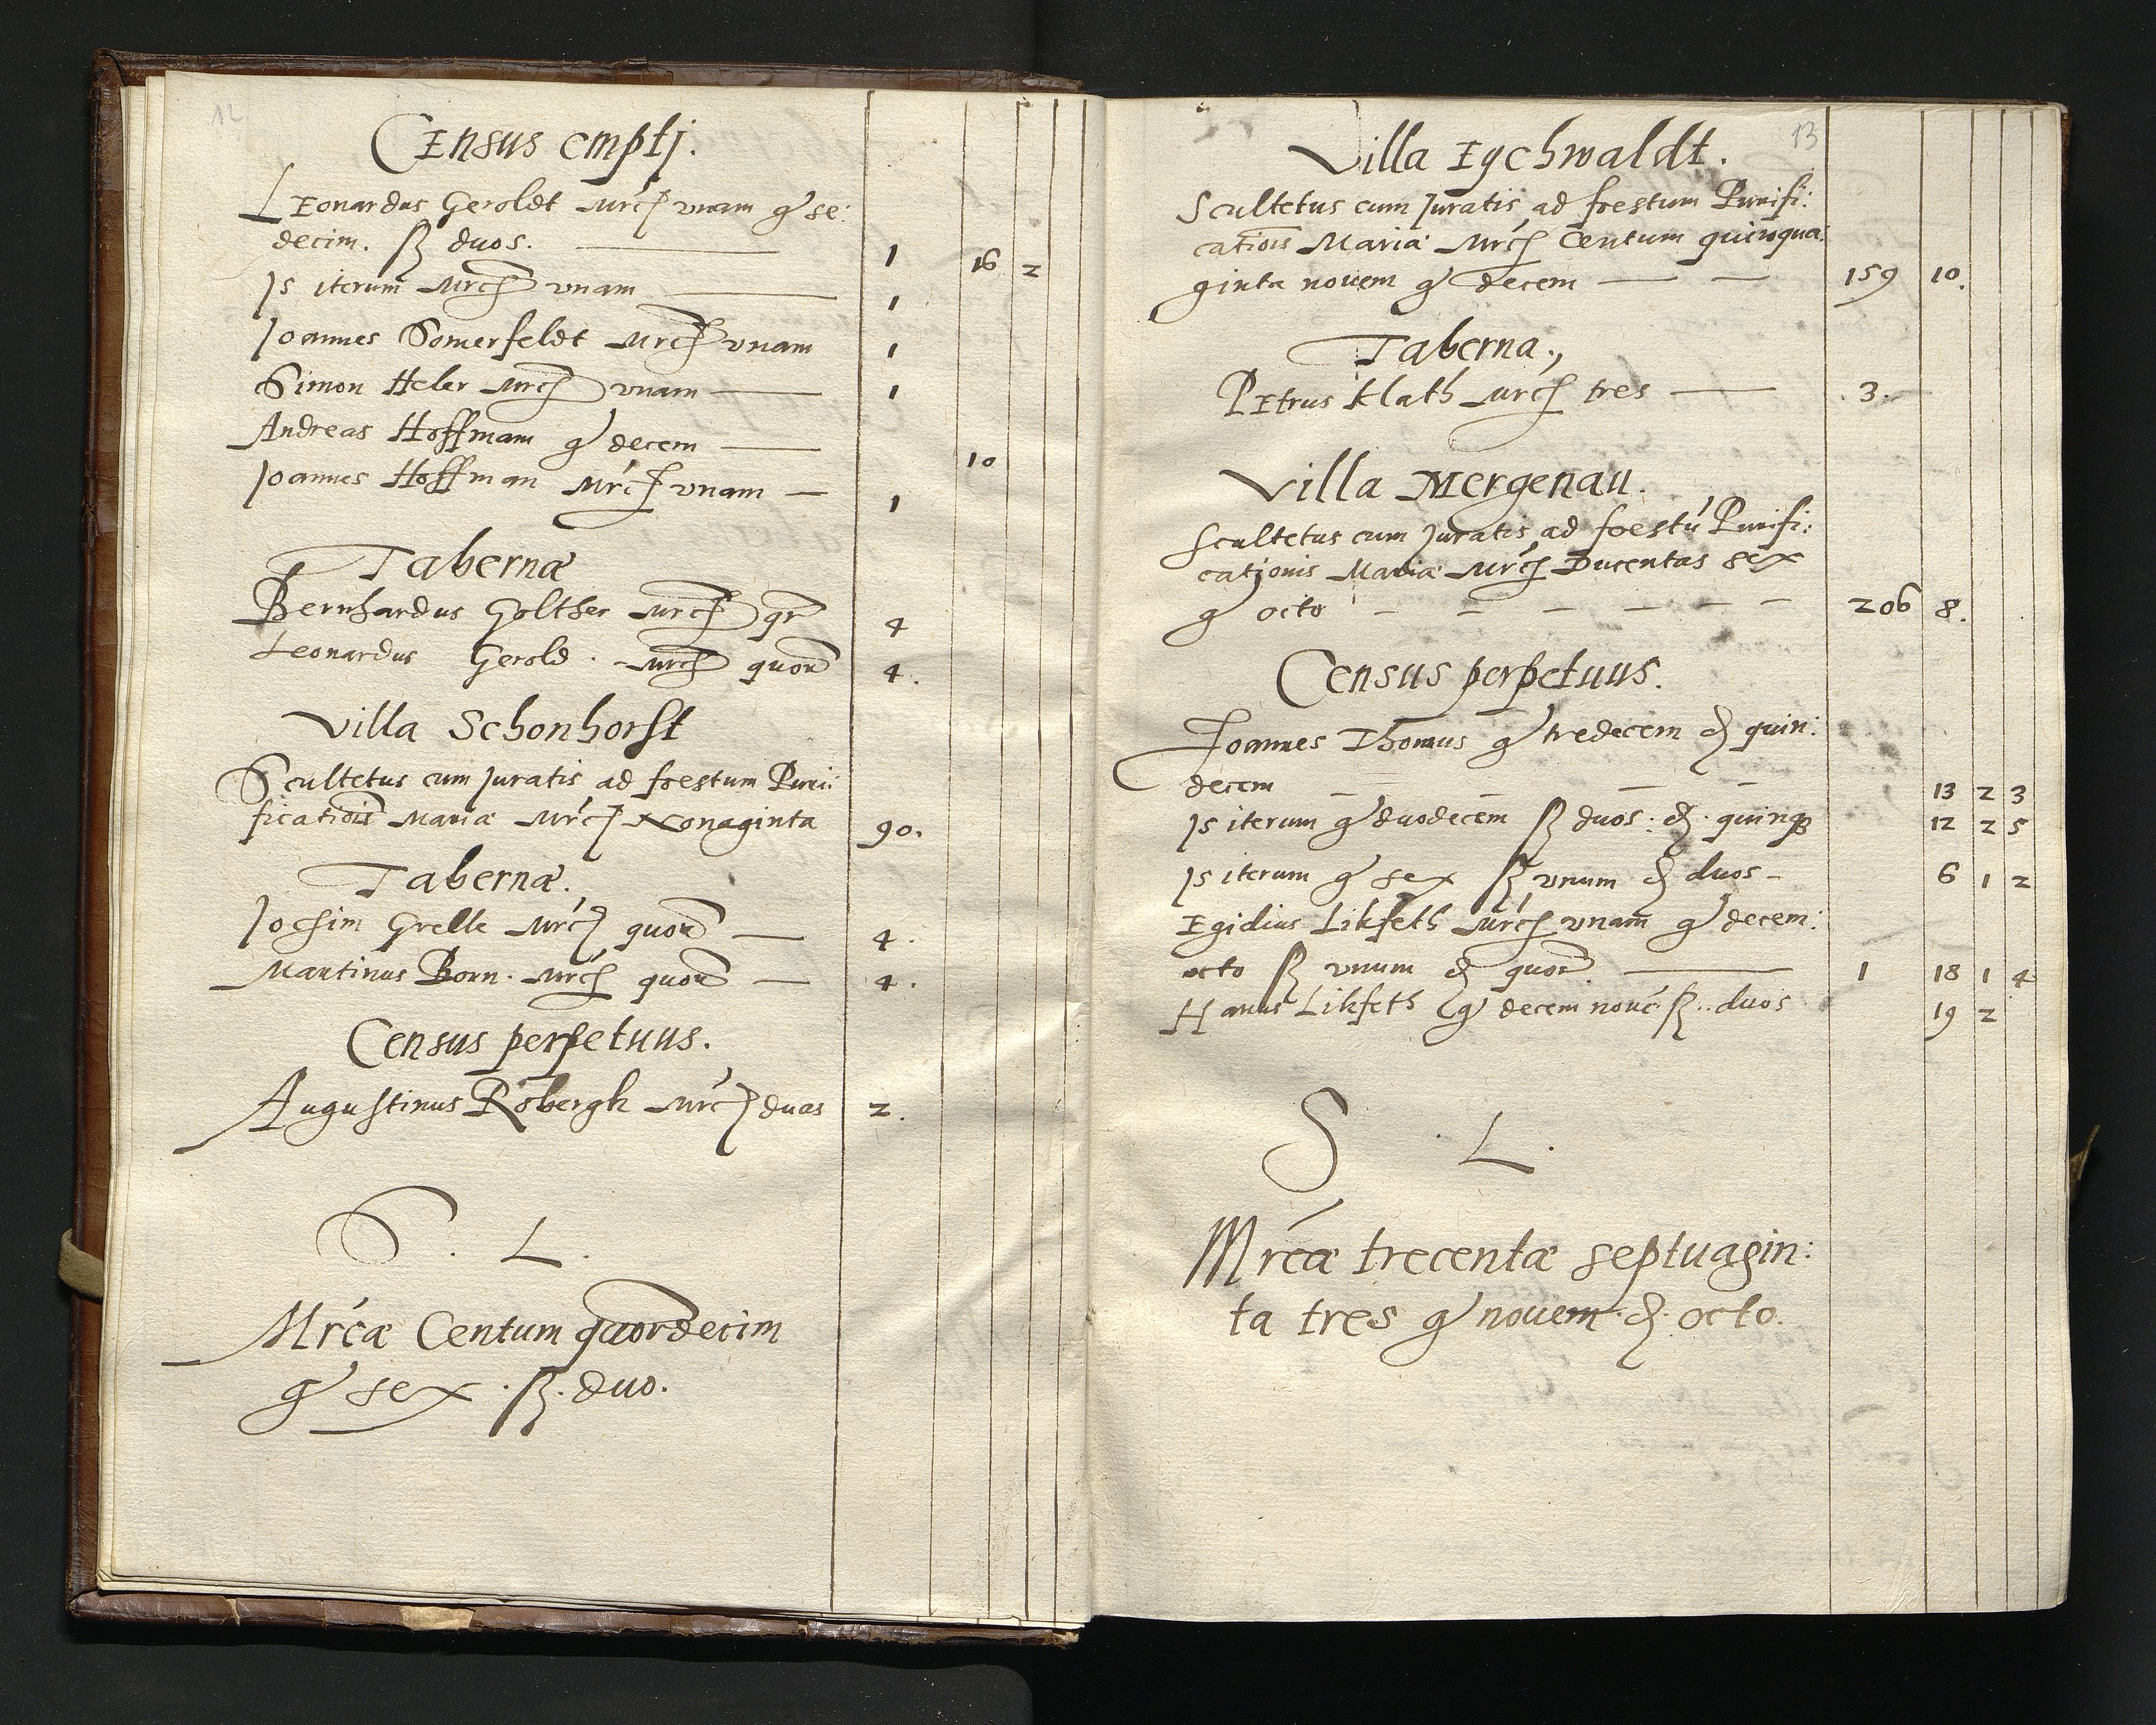 12
Census emptj.
Leonardus Geroldt mrc vnam g se:
decim. ß duos. 1 16 2
Js iterum mrc vnam 1
Joannes Somerfeldt mrc vnam 1
Simon Heler mrc vnam 1
Andreas Hoffmam g decem 10
Joannes Hoffman mrc vnam 1
Tabernæ
Bernhardus Golther mrc qr 4
Leonardus Gerold. mrc quor 4.
Villa Schonhorst
Scultetus cum Juratis ad foestum Puri:
ficatiois Maria mrc Nonaginta 90.
Tabernæ.
Jochim Grelle mrc quor 4.
Martinus Born. mrc quor 4.
Census perpetuus.
Augustinus Robergk mrc duas 2.
S. L.
Mrcæ Centum quordecim
g sex. ß. duo.
13
Villa Eychwaldt.
Scultetus cum Juratis ad foestum Purifi:
catiois Maria mrc Centum quinqua:
ginta nouem g decem 159 10.
Taberna.,
Petrus Klath mrc tres 3.
Villa Mergenau.
Scultetus cum Juratis ad foestu Purifi:
cationis Maria mrc Ducentas sex
g octo 206 8.
Census perpetuus.
Joannes Thomus g tredecem ₰ quin:
decem 13 2 3
Js iterum g duodecem ß duos: ₰. quinq 12 2 5
Js iterum g sex ß vnum ₰ duos 6 1 2
Egidius Likfeth mrc vnam g decem:
octo ß vnum ₰ quor 1 18 1 4
Hanus Likfeth g decem noue ß.. duos 19 2
S. L.
Mrcæ trecentæ septuagin:
ta tres g nouem. ₰. octo.